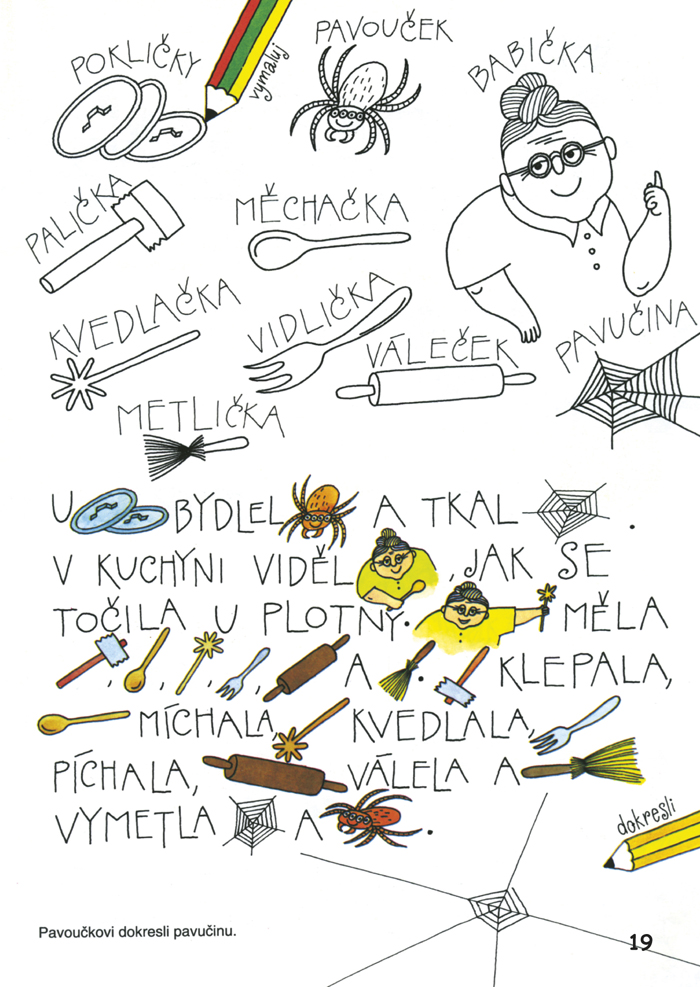 POKLIČKY
vymaluj
PAVOUČEK
BABIČKA
PALIČKA
MĚCHAČKA
KVEDLAČKA
VIDLIČKA
VÁLEČEK
PAVUČINA
METLIČKA
U BYDLEL A TKAL .
V KUCHYNI VIDĚL , JAK SE
TOČILA U PLOTNY. MĚLA
, , , , A . KLEPALA,
MÍCHALA, KVEDLALA,
PÍCHALA, VÁLELA A
VYMETLA A .
dokresli
Pavoučkovi dokresli pavučinu.
19